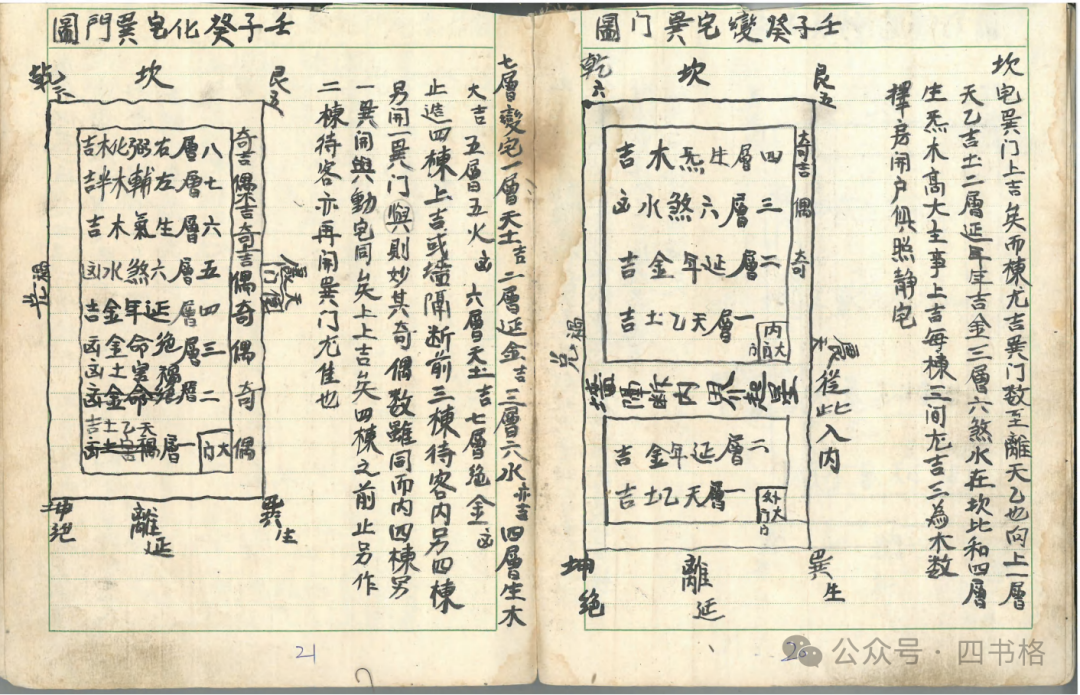 壬子癸變宅巽门圖
坎宅巽门上吉矣而棟尤吉巽门数至離天乙也向上一層
天乙吉土二層延年吉金三層六煞水在坎比和四層
生炁木高大主事上吉每棟三间尤吉三為木数
擇房開户俱照静宅
艮五
坎
乾六
奇吉
偶
奇
四層生炁木吉
三層六煞水凶
二層延年金吉
一層天乙土吉
内大门
從此入内
墻隔断内
二層延年金吉
一層天乙土吉
外大门
巽生
離延
坤絶
20
壬子癸化宅巽門圖
七層變宅一層天土吉二層延金吉三層六水亦吉四層生木
大吉 五層五火凶 六層天土吉七層绝金凶
止造四棟上吉或墙隔断前三棟待客内另四棟
另開一巽门與则妙其奇偶数雖同而内四棟另
一巽開與動宅同矣上上吉矣四棟之前止另作
二棟待客亦再開巽门尤佳也
艮五
坎
奇吉
偶吉
奇吉
偶
奇
偶
奇
偶
八層右弼化木吉
七層左輔木半吉
六層生氣木吉
五層六煞水凶
四層延年金吉
三層绝命金凶
一層
大门
巽生
離延
坤絶
21
公众号·四书格